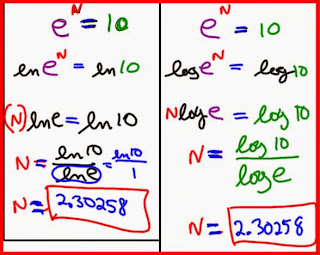 e^N = 10
ln e^N = ln 10
(N) ln e = ln 10
N = ln 10 / ln e = ln 10 / 1
N = 2.30258
e^N = 10
log e^N = log 10
N log e = log 10
N = log 10 / log e
N = 2.30258